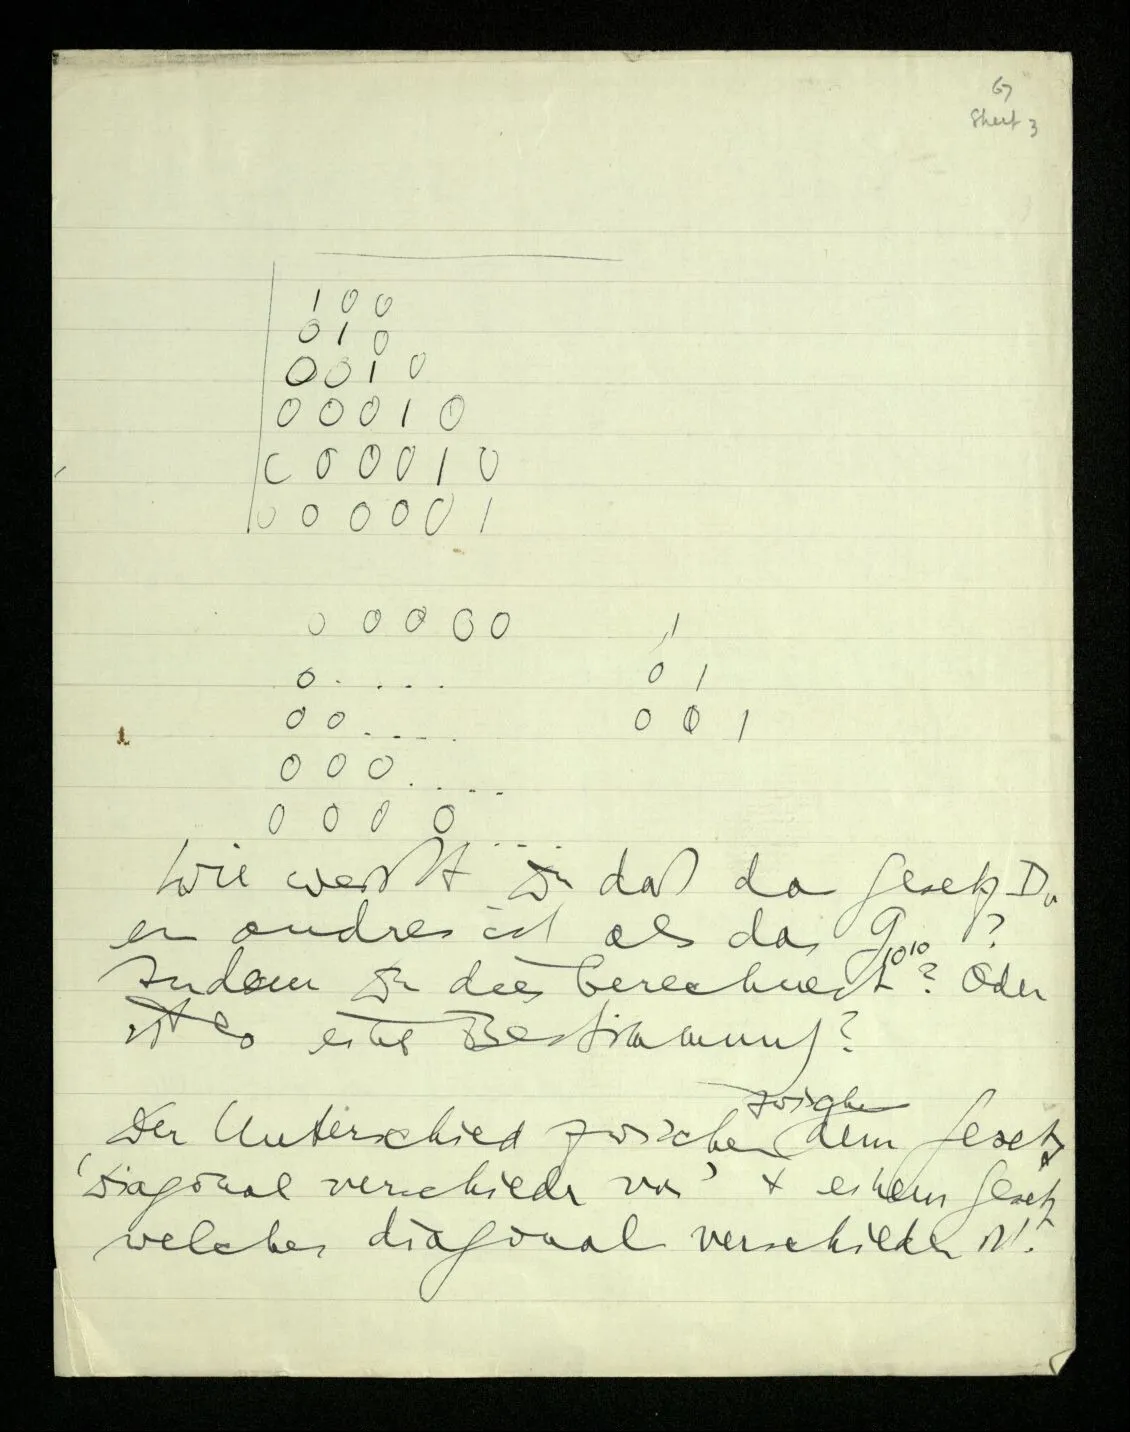 67
Sheet 3
1 0 0
0 1 0
0 0 1 0
0 0 0 1 0
0 0 0 0 1 0
0 0 0 0 0 1
0 0 0 0 0 1
0 . . . . 0 1
0 0 . . . . 0 0 1
0 0 0 . . . .
0 0 0 0 . . .
Wie weißt Du daß das Gesetz D.
ein andres ist als das G 10 10 ?
Indem Du dies berechnest? Oder
ist es eine Bestimmung?
zwischen
Der Unterschied zwischen dem Gesetz
'Diagonal verschieden von' + einem Gesetz
welches diagonal verschieden ist.